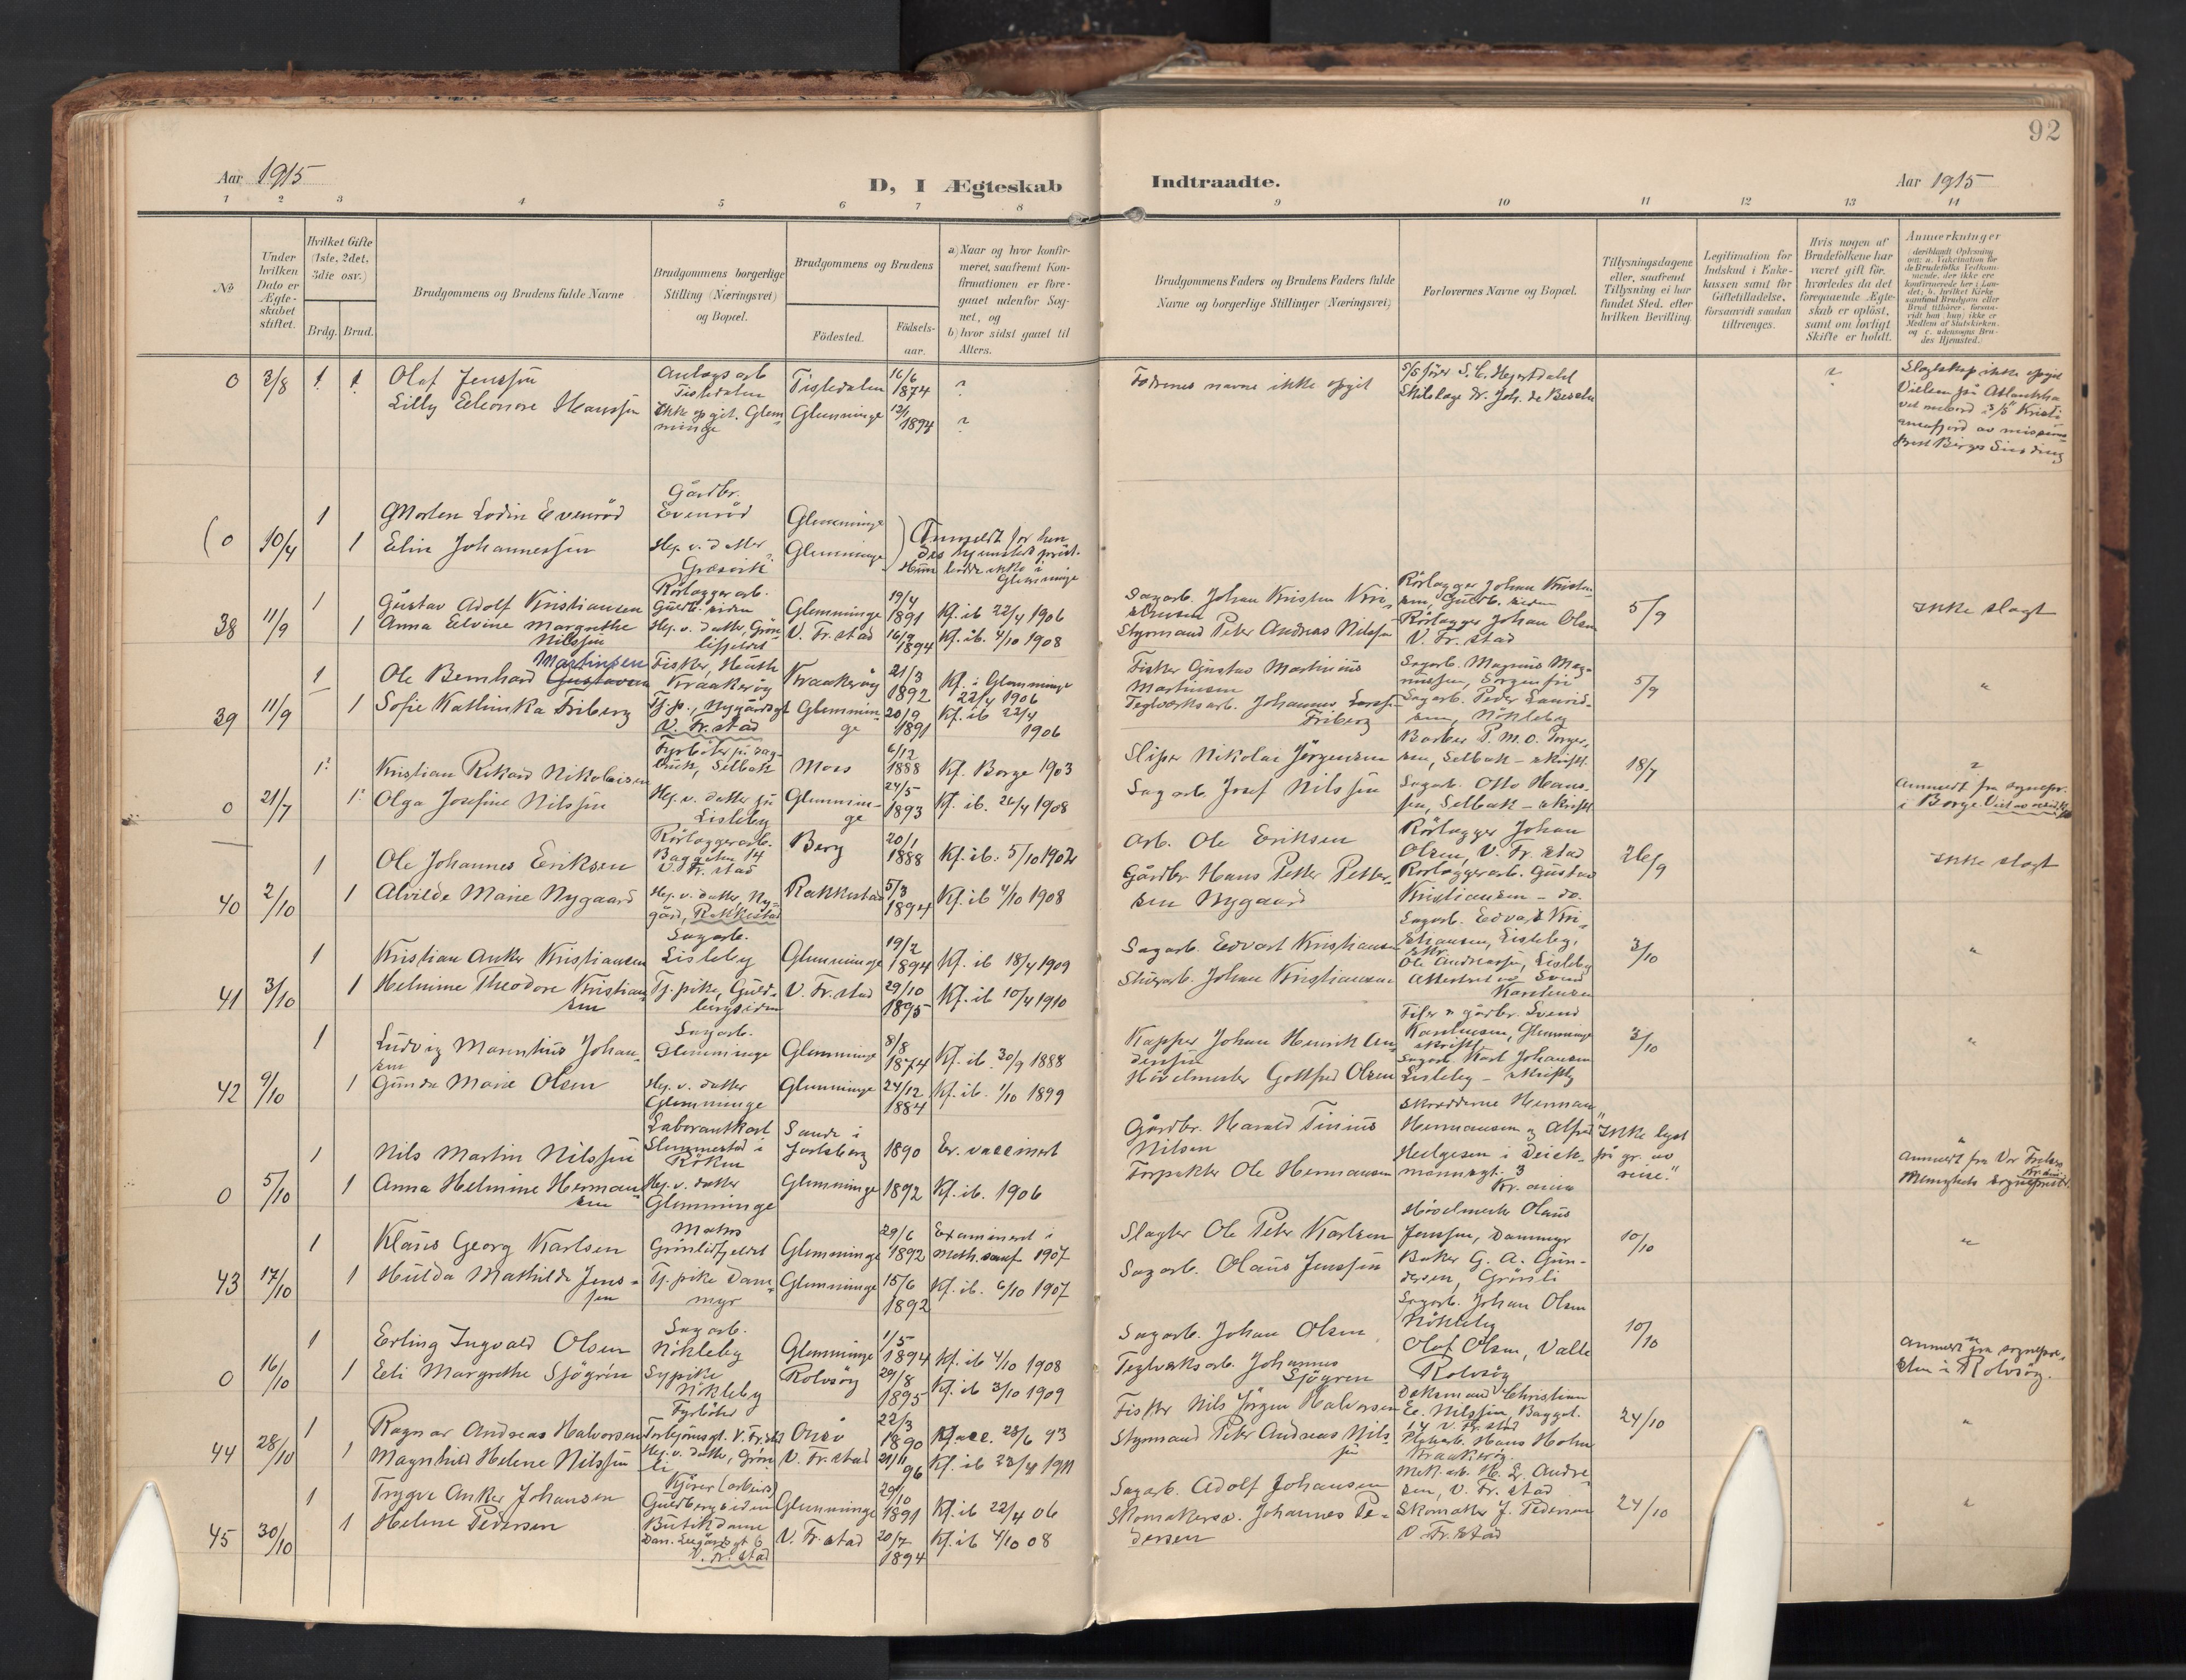 92
Aar 1915
D, I Ægteskab
Indtraadte.
Aar 1915
1 2 3 4 5 6 7 8 9 10 11 12 13 14
No
Under hvilken Dato er Ægteskabet stiftet.
Hvilket Gifte (1ste, 2det, 3die osv.)
Brdg. Brud.
Brudgommens og Brudens fulde Navne
Brudgommens borgerlige Stilling (Næringsvei) og Bopæl.
Brudgommens og Brudens
Födested.
Födsels-aar.
a) Naar og hvor konfirmeret, saafremt Konfirmationen er foregaaet udenfor Sognet, og
b) hvor sidst gaaet til Alters.
Brudgommens Faders og Brudens Faders fulde Navne og borgerlige Stillinger (Næringsvei)
Forlovernes Navne og Bopæl.
Tillysningsdagene eller, saafremt Tillysning ei har fundet Sted, efter hvilken Bevilling.
Legitimation for Indskud i Enkekassen samt for Giftetilladelse, forsaavidt saadan tiltrænges.
Hvis nogen af Brudefolkene har været gift för, hvorledes da det foregaaende Ægteskab er oplöst, samt om lovligt Skifte er holdt.
Anmerkninger
0 3/8 1 1 Olaf Jenssen
Tistedalen
Tistedalen 16/6 1874 ?
Lilly Eleonore Hanssen
Ikke opgit. Glemminge
Glemminge 12/1 1894 ?
Fædrenes navne ikke opgit
?
Slagtskap ikke opgit
0 10/4 1 Morten Lodin Evenröd
Gårdbr. Evenröd
Glemminge
1 Elin Johannessen
Hj. v. datter Græsvik
Glemminge
Anmeldt for hendes hjemsteds præst.
Hun hadde ikke i Glemminge
38 11/9 1 Gustav Adolf Kristiansen
Rörlæggerarb. Guldb. siden
Glemminge 19/4 1891 Kf. ib 22/4 1906
1 Anna Elvine Margrethe Nilssen
Hj. v. datter, Grönlifjeldet
V. Fr. stad 16/9 1894 Kf. ib. 4/10 1908
Sagarb. Johan Kristen Kristiansen
Styrmand Peter Andreas Nilssen
Rörlægger Johan Kristiansen, Guldb. siden
Rörlægger Johan Olsen V. Fr. stad
5/9
Ikke slagt
39 11/9 1 Ole Bernhard Gustavsen Martinsen
Fisker, Kraakeröy
Kraakeröy 21/3 1892 Kf. i Glemminge 22/4 1906
1 Sofie Kathinka Friberg
Tj. p., Nygårdsgt V. Fr. stad
Glemminge 20/9 1891 Kf. ib 22/4 1906
Fisker Gustav Martinius Martinsen
Teglverksarb. Johannes Friberg
Sagarb. Magnus Magnussen, Sorgenfri
Sagarb. Peder Lauridsen, Nökleby
5/9
"
0 21/7 1? Kristian Rikard Nikolaisen
Fyrböter på sagbruk, Selbak
Moss 6/12 1888 Kf. Borge 1903
1? Olga Josefine Nilssen
Hj. v. datter på Lisleby
Glemminge 24/5 1893 Kf. ib. 26/4 1908
Sliper Nikolai Jörgensen
Sagarb. Josef Nilssen
Barber P. M. O. Torgersen, Selbak – skriftl.
Sagarb. Otto Hanssen, Selbak – skriftl.
18/7
?
Anmeldt fra sognepr. i Borge.
40 2/10 1 Ole Johannes Eriksen
Rörlæggerarb. Baggetun 14 V. Fr. stad
Berg 20/1 1888 Kf. ib. 5/10 1902
1 Alvilde Marie Nygaard
Hj. v. datter, Nygård, Rakkestad
Rakkestad 5/3 1894 Kf. ib 4/10 1908
Arb. Ole Eriksen
Gårdbr Hans Petter Pettersen Nygaard
Rörlægger Johan Olsen, V. Fr. stad
Rörlæggerarb. Gustav Kristiansen – do.
26/9
Ikke slagt
41 3/10 1 Kristian Anker Kristiansen
Sagarb. Lisleby
Glemminge 19/2 1894 Kf. ib 18/4 1909
1 Helmine Theodore Kristiansen
Tj. pike, Guldbergsiden
V. Fr. stad 29/10 1895 Kf. ib 10/4 1910
Sagarb. Edvart Kristiansen
Johan Kristiansen
Sagarb. Edvart Kristiansen, Lisleby,
Ole Andreassen, Lisleby
Attestert av Svend Karstensen
3/10
"
42 9/10 1 Ludvig Marentius Johansen
Sagarb. Glemminge
Glemminge 8/8 1874 Kf. ib. 30/9 1888
1 Gunda Marie Olsen
Hj. v. datter Glemminge
Glemminge 24/12 1884 Kf. ib. 1/10 1899
Kapper Johan Henrik Andersen
Hövelmester Gottfred Olsen
gårdbr. Svend Karstensen, Glemminge skriftl.
Sagarb. Karl Johansen Lisleby – skriftlig
3/10
"
0 5/10 1 Nils Martin Nilssen
Slemmestad i Röken
Sande i Jarlsberg 1890 Er. vaccinert
1 Anna Helmine Hermansen
Hj. v. datter Glemminge
Glemminge 1892 Kf. ib. 1906
Gårdbr. Harald Tinius Nilsen
Forpakter Ole Hermansen
Skrædderne Herman Hermansen og Alfred Helgesen i Deichmannsgt. 3 Kr. ania
"Ikke lyst på gr. av reise."
"
Anmeldt fra Vor Frelsers Menigheds sogneprest.
43 17/10 1 Klaus Georg Karlsen
Matros Grönlifjeldet
Glemminge 29/6 1892 Examinert i Meth. samf 1907
1 Hulda Mathilde Jenssen
Tj. pike Dammyr
Glemminge 15/6 1892 Kf. ib. 6/10 1907
Slagter Ole Peter Karlsen
Sagarb. Olaus Jenssen
Hövelmester Olaus Jenssen, Dammyr
Baker G. A. Gundersen, Grönli
10/10
"
0 16/10 1 Erling Ingvald Olsen
Sagarb. Nökleby
Glemminge 1/5 1894 Kf. ib 4/10 1908
1 Edi Margrethe Sjögren
Sypike Nökleby
Rolvsöy 29/8 1895 Kf. ib 3/10 1909
Sagarb. Johan Olsen
Teglverksarb. Johannes Sjögren
Sagarb. Johan Olsen Nökleby
Olaf Olsen, Valle Rolvsöy
10/10
"
Anmeldt fra sognepresten i Rolvsöy.
44 28/10 1 Ragnar Andreas Halvorsen
Fyrböter V. Fr. stad
Onsö 22/3 1890 28/6 93
1 Magnhild Helene Nilssen
Hj. v. datter, Grönli
V. Fr. stad 21/11 96 Kf. ib 23/4 1911
Fisker Nils Jörgen Halvorsen
Styrmand Peter Andreas Nilssen
Christian E. Nilssen, Baggat. 14 V. Fr. stad
Hans Holm Kraakeröy
24/10
"
45 30/10 1 Trygve Anker Johansen
Kjörer (arbeids) Guldbergsiden
Glemminge 29/10 1891 Kf. ib 22/4 06
1 Helene Pedersen
Butikdame V. Fr. stad
V. Fr. stad 20/7 1894 Kf. ib 4/10 08
Sagarb. Adolf Johansen
Skomakersv. Johannes Pedersen
Mek. arb. Andresen, V. Fr. stad
Skomaker J. Pedersen V. Fr. stad
24/10
"